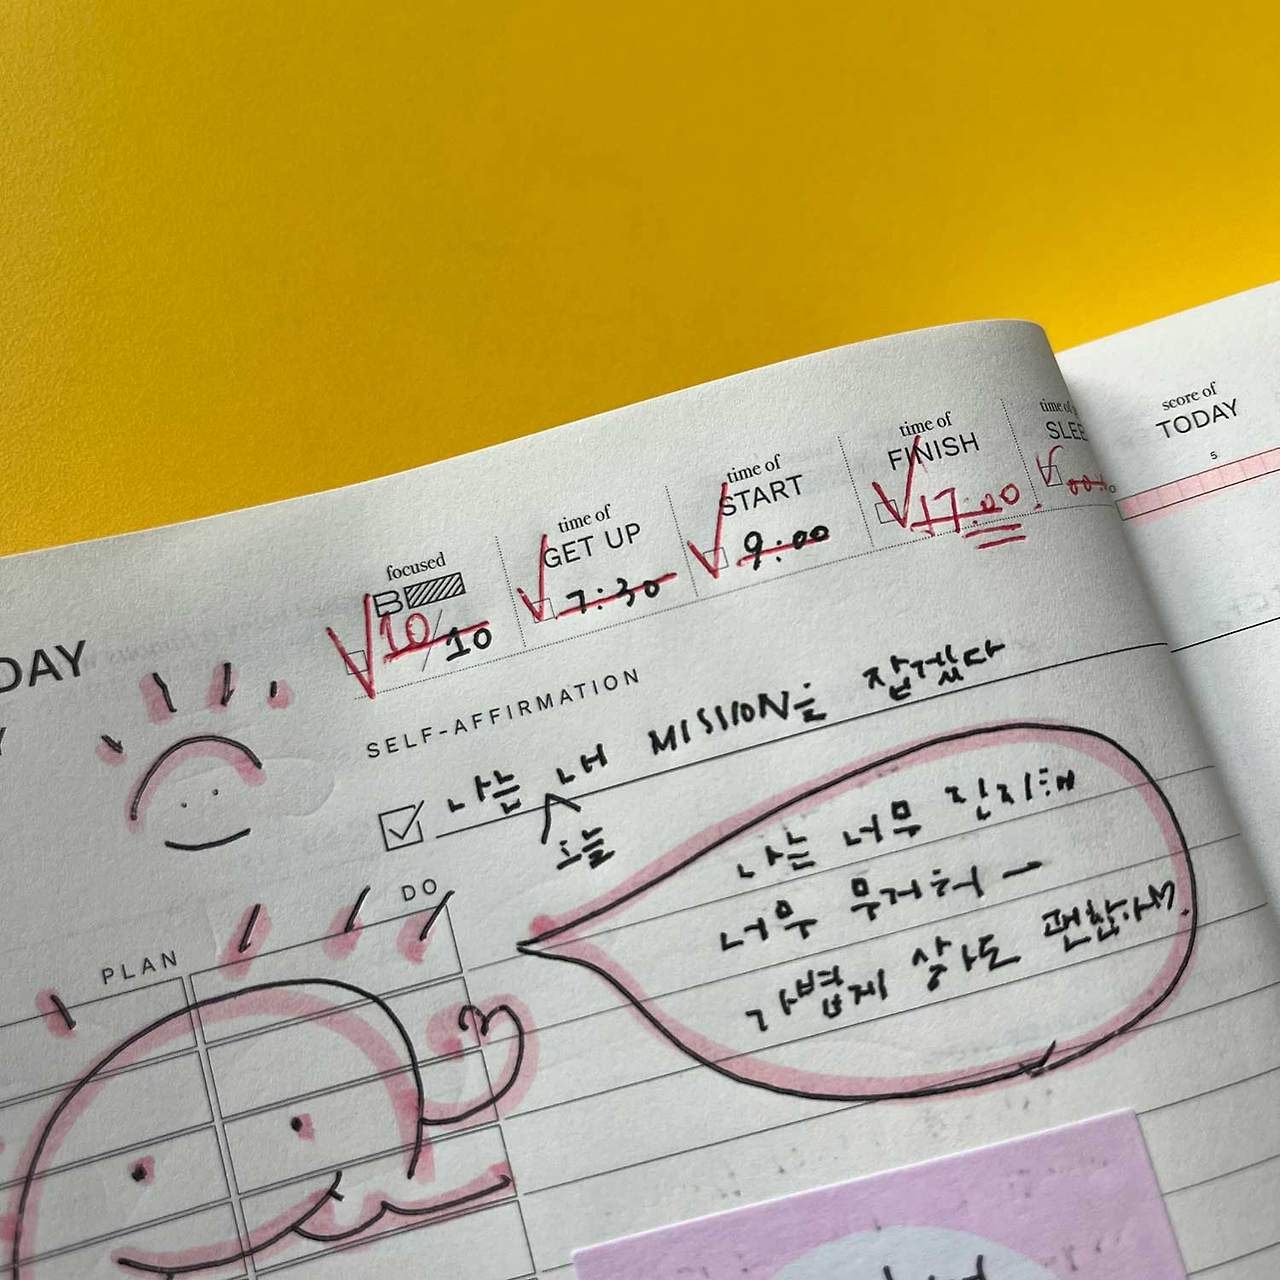 DAY
Y
focused
B
10/10
time of
GET UP
7:30
time of
START
9:00
time of
FINISH
17:00
time of
SLEE
score of
TODAY
5
SELF-AFFIRMATION
나는 내 MISSION을
오늘
나는 너무 진지해
너무 무거워~
가볍게 살아도 괜찮아.
PLAN
DO